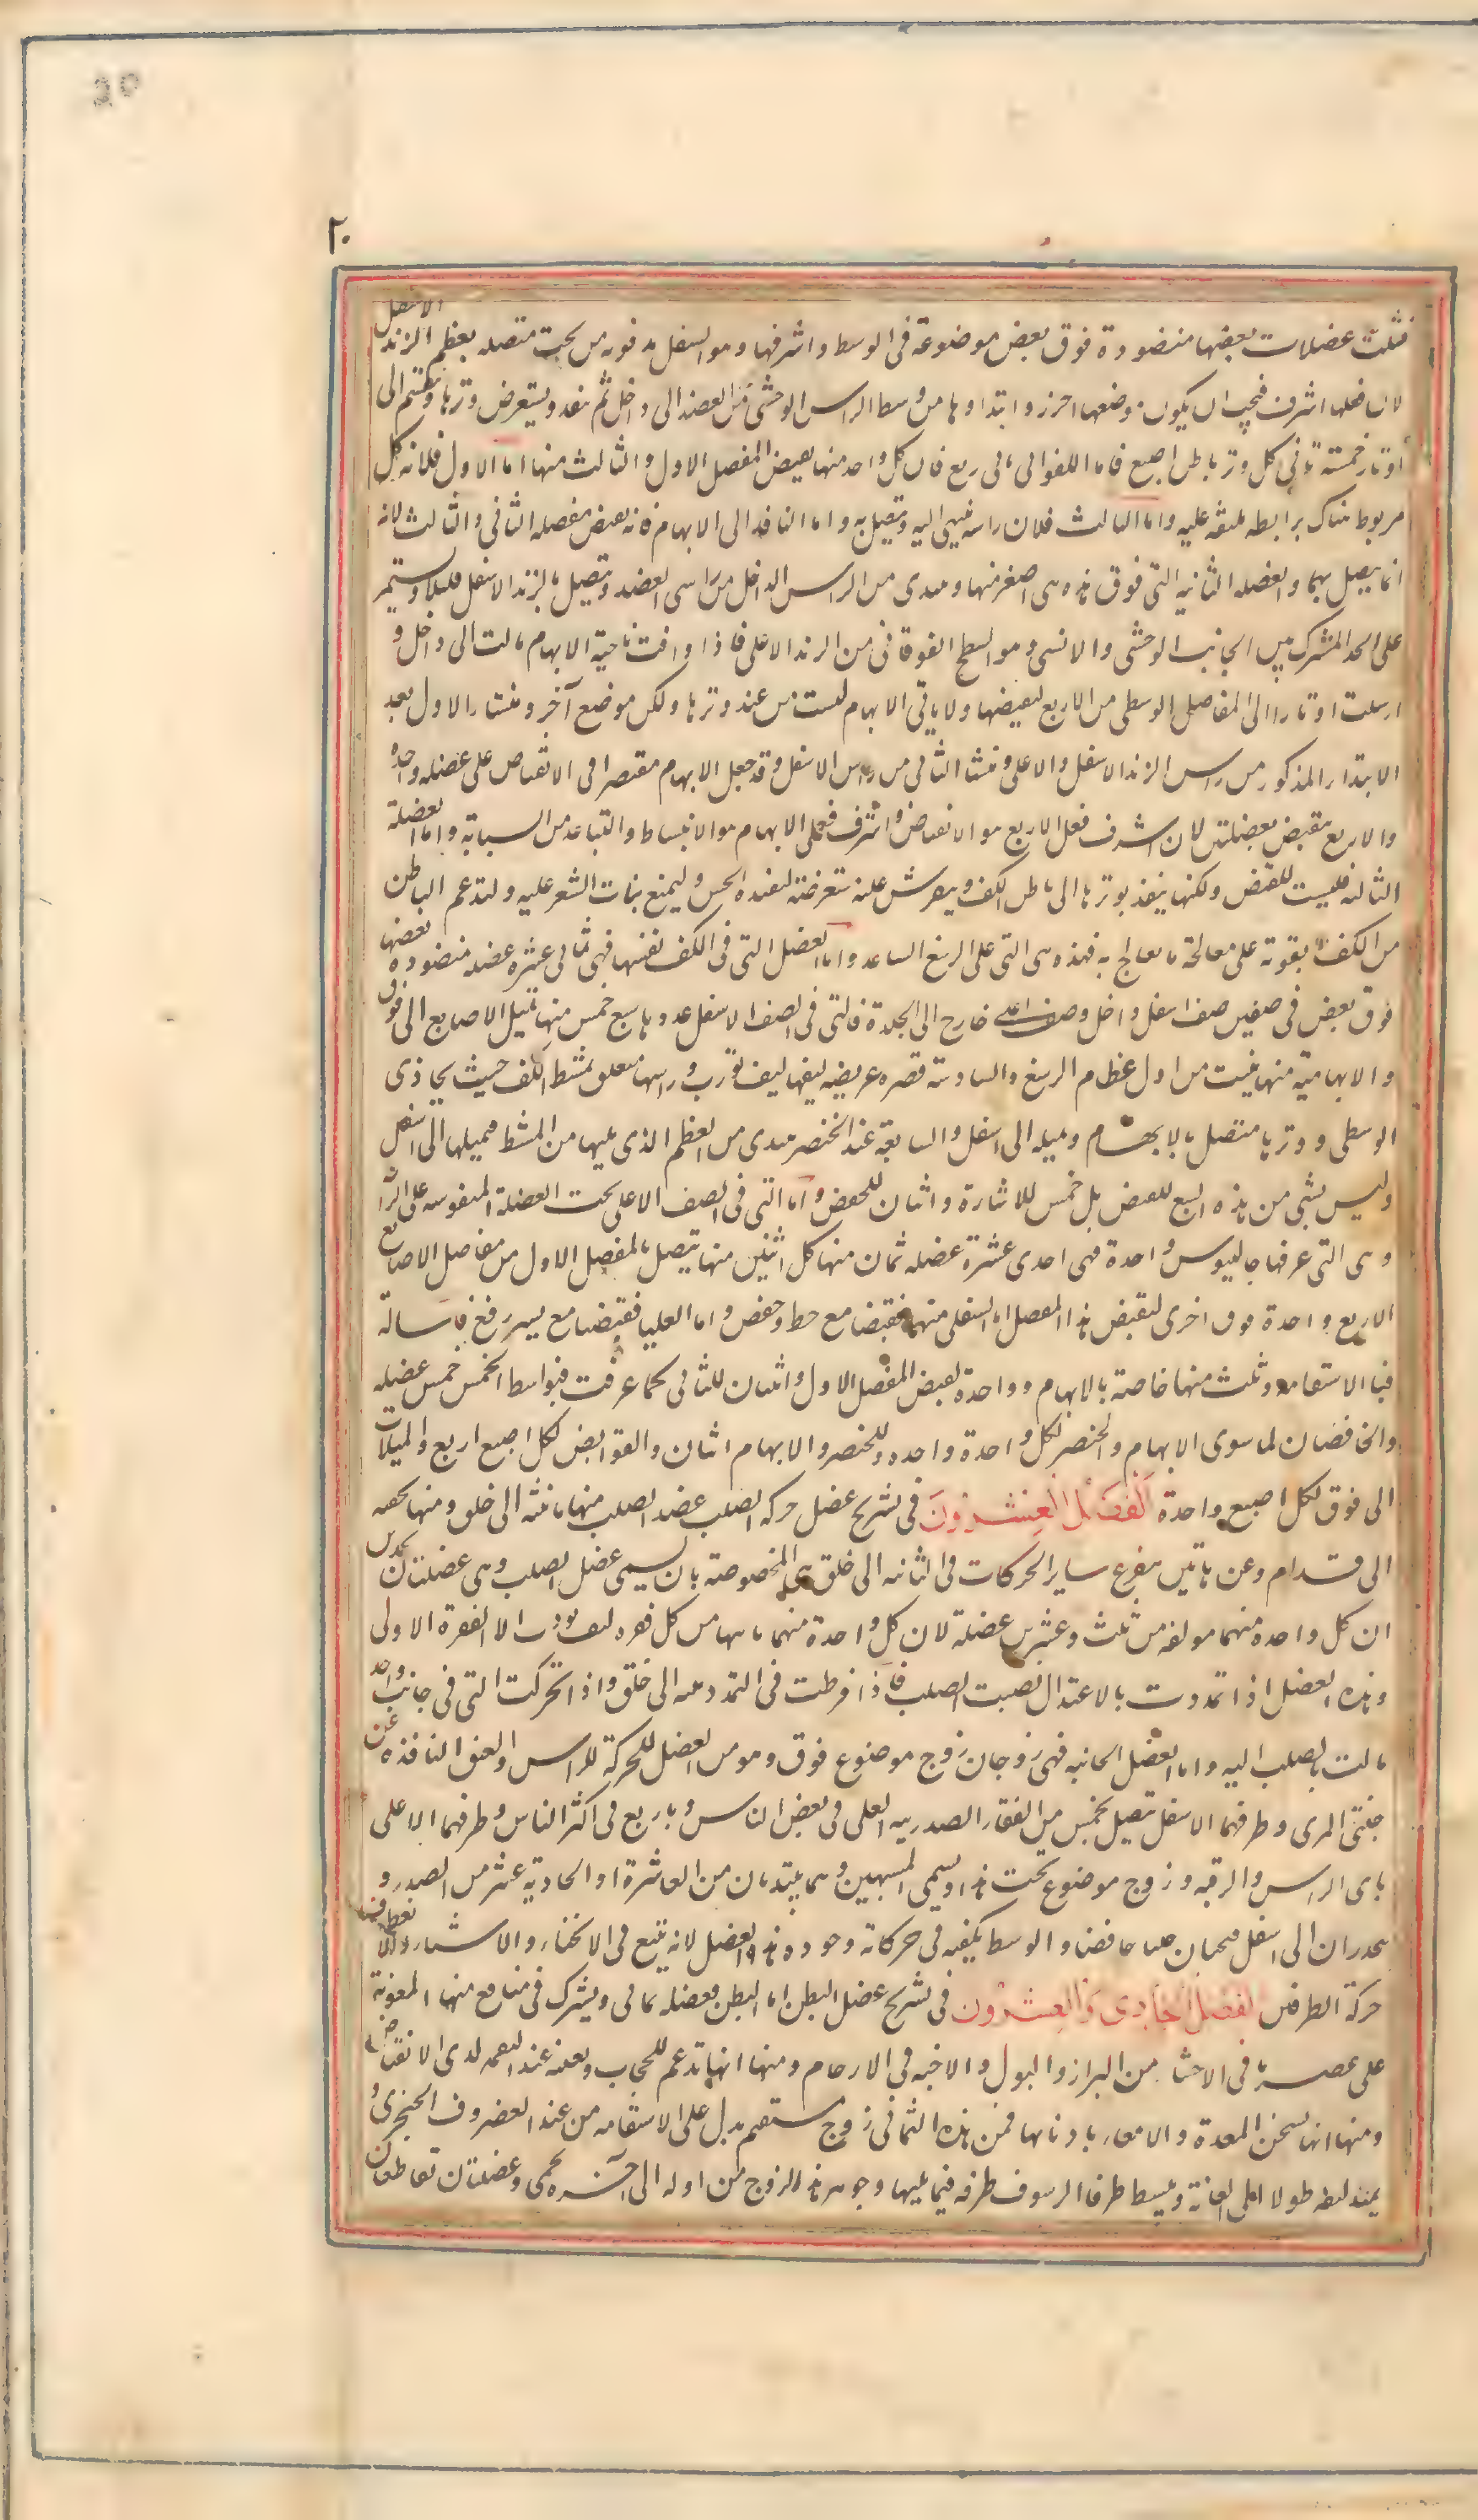 20
٢٠
فثلث عضلات بعضها منضودة فوق بعض موضوعة فى الوسط واشرفها وهو السفل مدفونه من تحت متصله بعظم الزند الاسفل
لان فعلها اشرف فيجب ان يكون موضعها احرز وابتداوها من وسط الراس الوحشى من العضد الى داخل ثم ينفد ويستعرض وترها وينقسم الى
اوتار خمسة ياتى كل وتر باطن اصبع فاما اللواتى تاتى الاربع فان كل واحد منها يقبض المفصل الاول والثالث منها اما الاول فلانه
مربوط هناك برابطه ملتفه عليه واما الثالث فلان راسه ينتهى اليه ويتصل به واما النافد الى الابهام فانه يقبض مفصله الثانى والثالث لانه
انما يتصل بهما والعضله الثانيه التى فوق هذه هى اصغر منها ويبتدى من الراس الداخل من راسى العضد ويتصل بالزند الاسفل قليلا ويستمر
على الحد المشترك بين الجانب الوحشى والانسى وهو السطح الفوقانى من الزند الاعلى فاذا وافت ناحية الابهام مالت الى داخل و
ارسلت اوتارا الى المفاصل الوسطى من الاربع ليقبضها ولا ياتى الابهام ليست من عند وترها ولكن موضع آخر ومنشا الاول بعد
الابتدا المذكور من راس الزند الاسفل والاعلى ومنشا الثانى من راس الاسفل وقد جعل الابهام مقتصرا فى الانقباض على عضله واحده
والاربع يقبض بعضلتين لان اشرف فعل الاربع هو الانقباض واشرف فعل الابهام هو الانبساط والتباعد من السبابة واما العضلة
الثالثه فليست للقبض ولكنها ينفذ بوترها الى باطن الكف وينفرش عليه مستعرضة ليفيده الحس وليمنع نبات الشعر عليه ولتدعم الباطن
من الكف بقوته على معالجة ما يعالج به فهذه هى التى على الرسغ الساعد واما العضل التى فى الكف نفسها فهى ثمانى عشره عضله منضوده بعضها
فوق بعض فى صفين صف اسفل داخل وصف اعلى خارج الى الجلدة فالتى فى الصف الاسفل عددها سبع خمس منها تميل الاصابع الى فوق
والابهامية منها ينبت من اول عظام الرسغ والسادسة قصيره عريضه ليفها ليف مورب وراسها متعلق بمشط الكف حيث يحاذى
الوسطى ووترها متصل بالابهام وتميله الى اسفل والسابعة عند الخنصر يبتدى من العظم الذى يليها من المشط فيميلها الى اسفل
وليس بشى من هذه السبع للقبض بل خمس للاشارة واثنان للخفض واما التى فى الصف الاعلى تحت العضلة المنفرشه على الراحة
وهى التى عرفها جالينوس واحدة فهى احدى عشرة عضله ثمان منها كل اثنين منها يتصل بالمفصل الاول من مفاصل الاصابع
الاربع واحدة فوق اخرى ليقبض هذا المفصل اما السفلى منهما فقبضا مع حط وخفض واما العليا فقبضا مع يسير رفع فاشالة
فبالاستقامه وثلث منها خاصة بالابهام وواحدة لقبض المفصل الاول واثنان للثانى كما عرفت فبواسط الخمس خمس عضله
والخافضان لما سوى الابهام والخنصر لكل واحدة واحده وللخنصر والابهام اثنان والقوابض لكل اصبع اربع والميلات
الى فوق لكل اصبع واحدة الفصل العشرون فى تشريح عضل حركه الصلب عضد الصلب منها ما يثنيه الى خلف ومنها يحنيه
الى قدام وعن هاتين يتفرع ساير الحركات فى الثانيه الى خلف هى المخصوصة بان يسمى عضل الصلب وهى عضلتان يحدس
ان كل واحده منهما مولفه من ثلث وعشرين عضلة لان كل واحدة منهما ياتيها من كل فقره ليف مورب الا الفقرة الاولى
وهذه العضل اذا تمددت بالاعتدال نصبت الصلب فاذا افرطت فى التمدد مثنيه الى خلف واذا تحركت التى فى جانب واحد
مالت بالصلب اليه واما العضل الحانيه فهى زوجان زوج موضوع فوق وهو من العضل المحركة للراس والعنق النافذه عن
جنبتى المرى وطرفهما الاسفل يتصل بخمس من الفقار الصدريه العلى فى بعض الناس وباربع فى اكثر الناس وطرفهما الاعلى
ياتى الراس والرقبه وزوج موضوع تحت هذا ويسمى المتنين وهما يبتديان من العاشرة او الحادية عشر من الصدر و
ينحدران الى اسفل فيحنيان حنيا خافضا والوسط يكفيه فى حركاته وجود هذه العضل لانه يتبع فى الانحناء والانثناء والانعطاف
حركة الطرفين الفصل الحادى والعشرون فى تشريح عضل البطن اما البطن فعضله ثمانى ويشترك فى منافع منها المعونة
على عصر ما فى الاحشا من البراز والبول والاجنه فى الارحام ومنها انها تدعم الحجاب وتعينه عند النفخه لدى الانقباض
ومنها انها يسخن المعدة والامعا بادفائها فمن هذه الثمانى زوج مستقيم ينزل على الاستقامه من عند الغضروف الخنجرى و
يمتد ليفه طولا الى العانة وينبسط طرفا الرسوف طرفه فيما يليها وجوهر هذا الزوج من اوله الى آخره لحمى وعضلتان تقاطعان